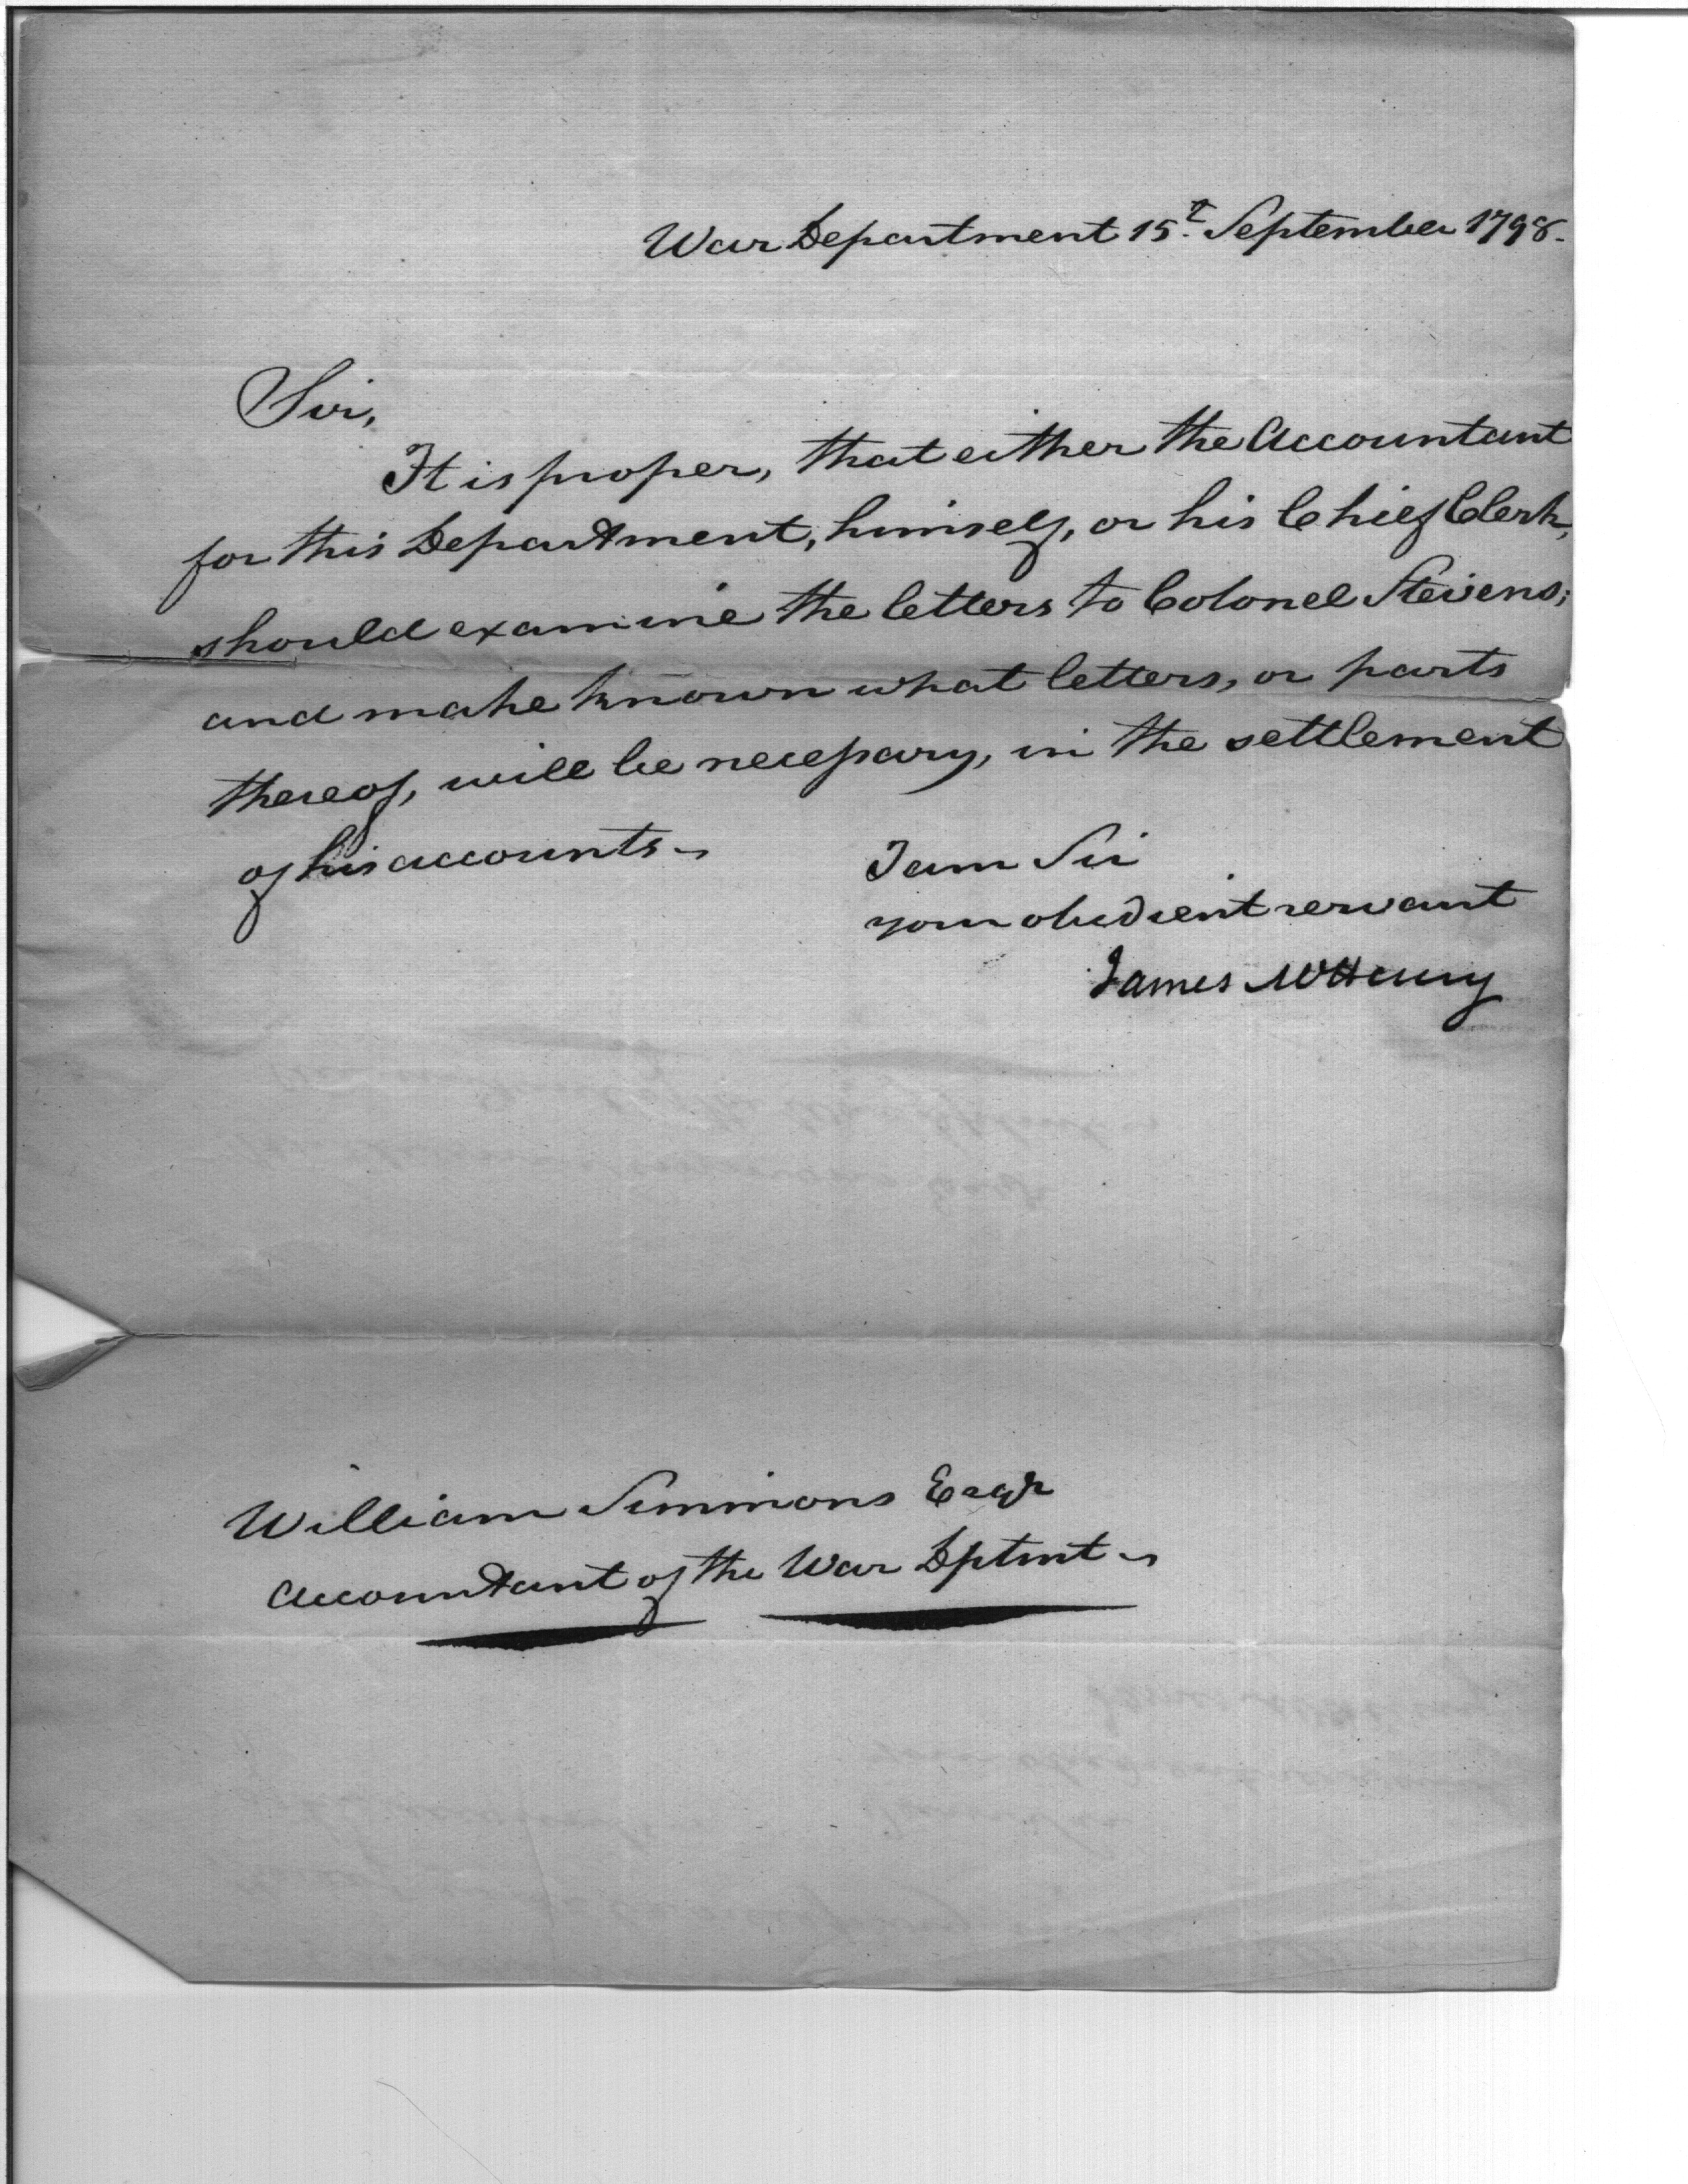 War Department 15.t September 1798.
Sir,
It is proper, that either the Accountant
for this Department, himself, or his Chief Clerk,
should examine the letters to Colonel Stevens;
and make known what letters, or parts
thereof, will be necessary, in the settlement
of his accounts~
I am Sir
your obedient servant
James McHenry
William Simmons Esqr
Accountant of the War Dptmt~